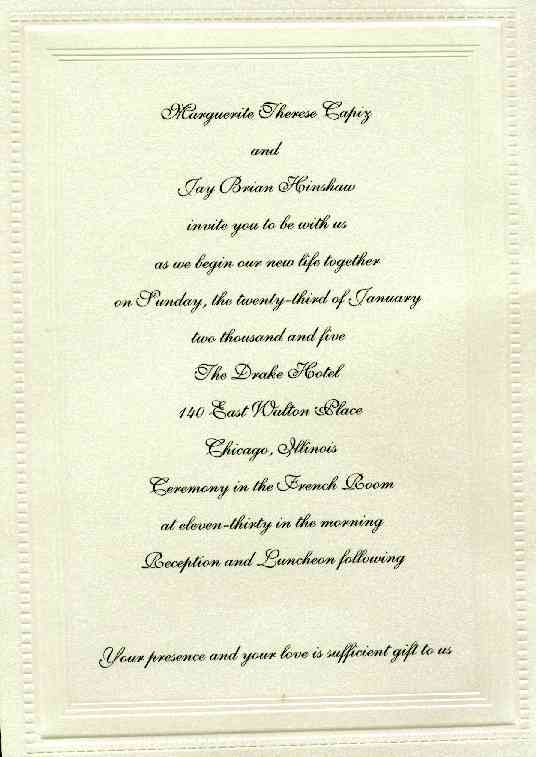 Marguerite Therese Capiz
and
Jay Brian Hinshaw
invite you to be with us
as we begin our new life together
on Sunday, the twenty-third of January
two thousand and five
The Drake Hotel
140 East Walton Place
Chicago, Illinois
Ceremony in the French Room
at eleven-thirty in the morning
Reception and Luncheon following
Your presence and your love is sufficient gift to us